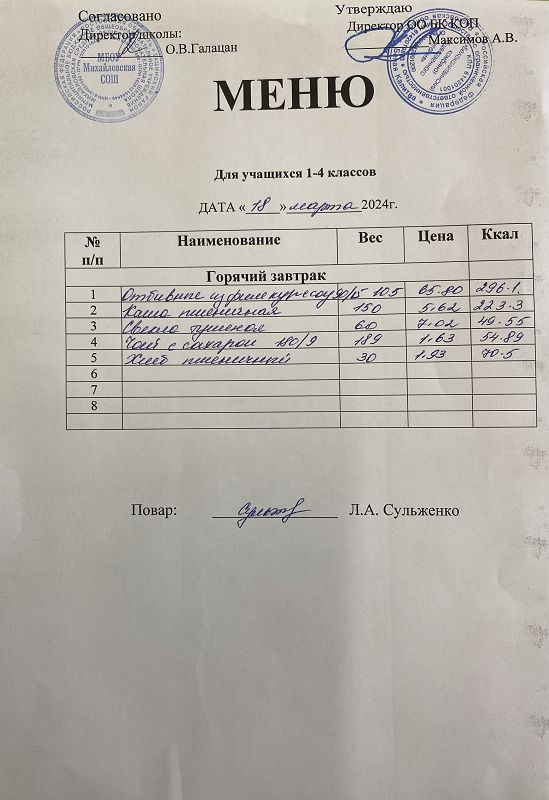 Согласовано
Утверждаю
Директор школы:
Директор ООО ЦК КОП
О.В.Галацан
Максимов А.В.
МБОУ
Михайловская
СОШ
МЕНЮ
Для учащихся 1-4 классов
ДАТА «18» марта 2024г.
№ п/п Наименование Вес Цена Ккал
Горячий завтрак
1 Отбивные из филе кур с соус 90/15 105 65.80 296.1
2 Каша пшеничная 150 5.62 223.3
3 Свекла тушеная 60 7.02 49.55
4 Чай с сахаром 180/9 189 1.63 54.89
5 Хлеб пшеничный 30 1.93 70.5
6
7
8
Повар: Л.А. Сульженко